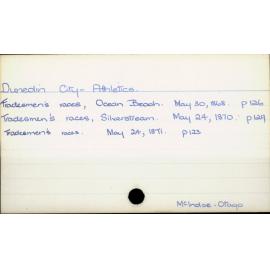 Dunedin City - Athletics.
Tradesmen's races, Ocean Beach. May 30, 1868. p126
Tradesmen's races, Silverstream. May 24, 1870. p129
Tradesmen's races. May 24, 1871. p123
McIndoe - Otago